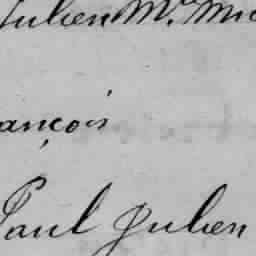 Julien Mr
ançois
Paul Julien